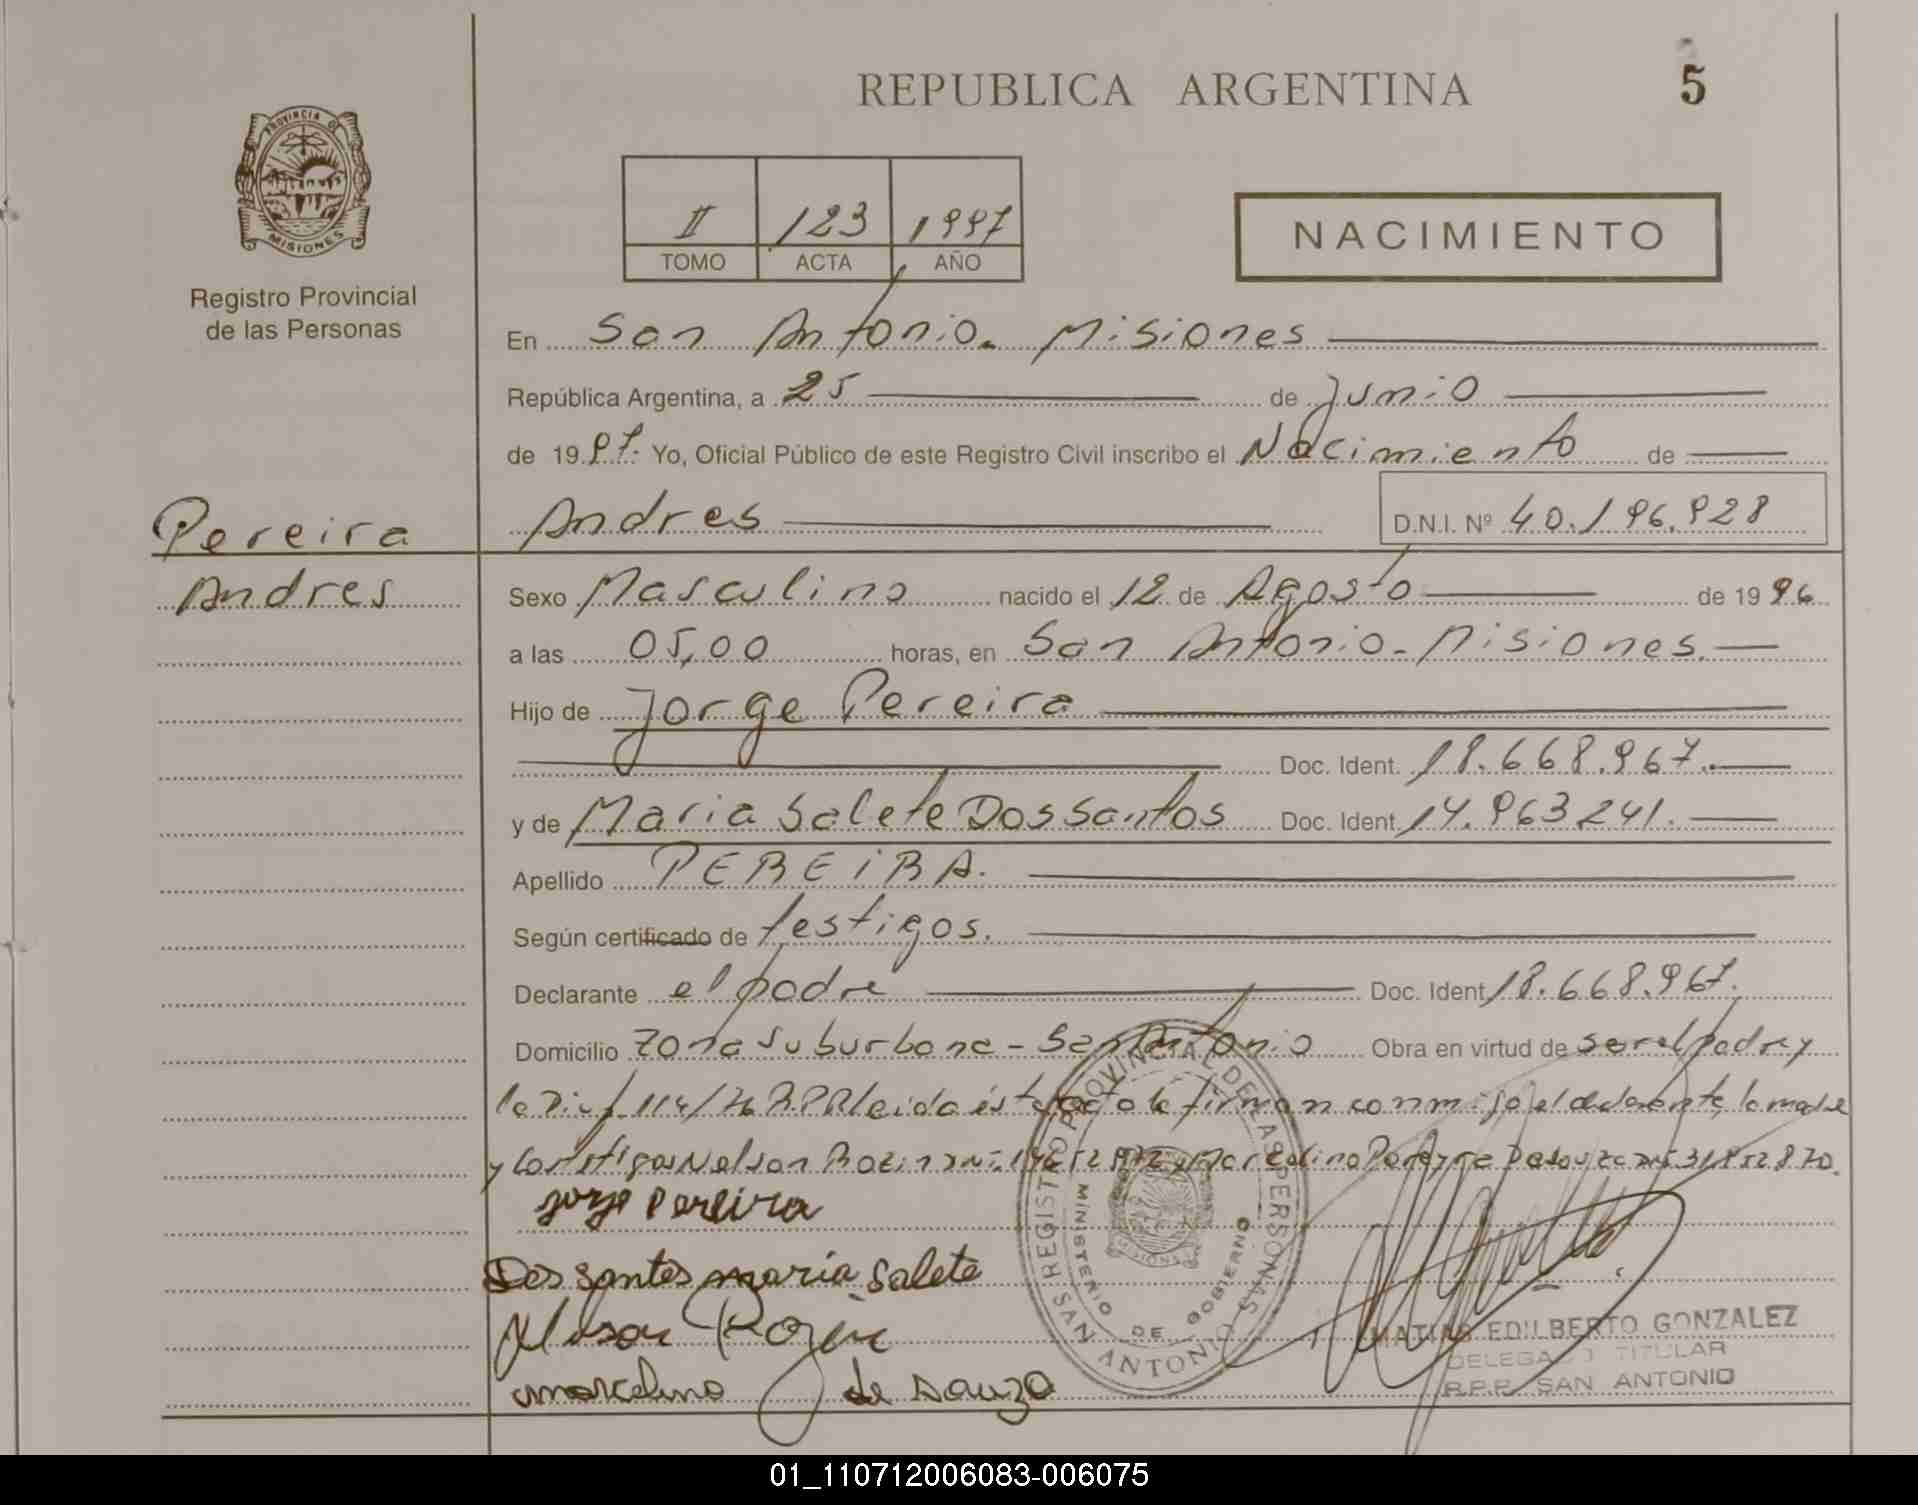 REPUBLICA ARGENTINA
5
PROVINCIA DE
MISIONES
Registro Provincial
de las Personas
II 123 1997
TOMO ACTA AÑO
NACIMIENTO
En San Antonio. Misiones
República Argentina, a 25 de Junio
de 1997. Yo, Oficial Público de este Registro Civil inscribo el Nacimiento de
Pereira
Andres
Andres D.N.I. Nº 40.196.928
Sexo Masculino nacido el 12 de Agosto de 1996
a las 05,00 horas, en San Antonio - Misiones.
Hijo de Jorge Pereira
Doc. Ident. 18.668.967.
y de Maria Salete Dos Santos Doc. Ident. 14.963241.
Apellido PEREIRA.
Según certificado de testigos.
Declarante el padre Doc. Ident 18.668.967.
Domicilio Zona Suburbana - San Antonio Obra en virtud de ser el padre y
leida firman conmigo el declarante, la madre
y los testigos Nelson
Jorge Pereira
Dos Santos maria Salete
marcelino de Souza
REGISTRO PROVINCIAL DE LAS PERSONAS
SAN ANTONIO
MINISTERIO DE GOBIERNO
MATIAS EDILBERTO GONZALEZ
DELEGADO TITULAR
R.P.P. SAN ANTONIO
01_110712006083-006075